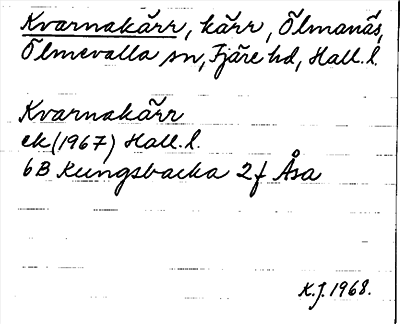 Kvarnakärr, kärr, Ölmanäs,
Ölmevalla sn, Fjäre hd, Hall. l.
Kvarnakärr
ek (1967) Hall. l.
6B Kungsbacka 2f Åsa
K.J. 1968.